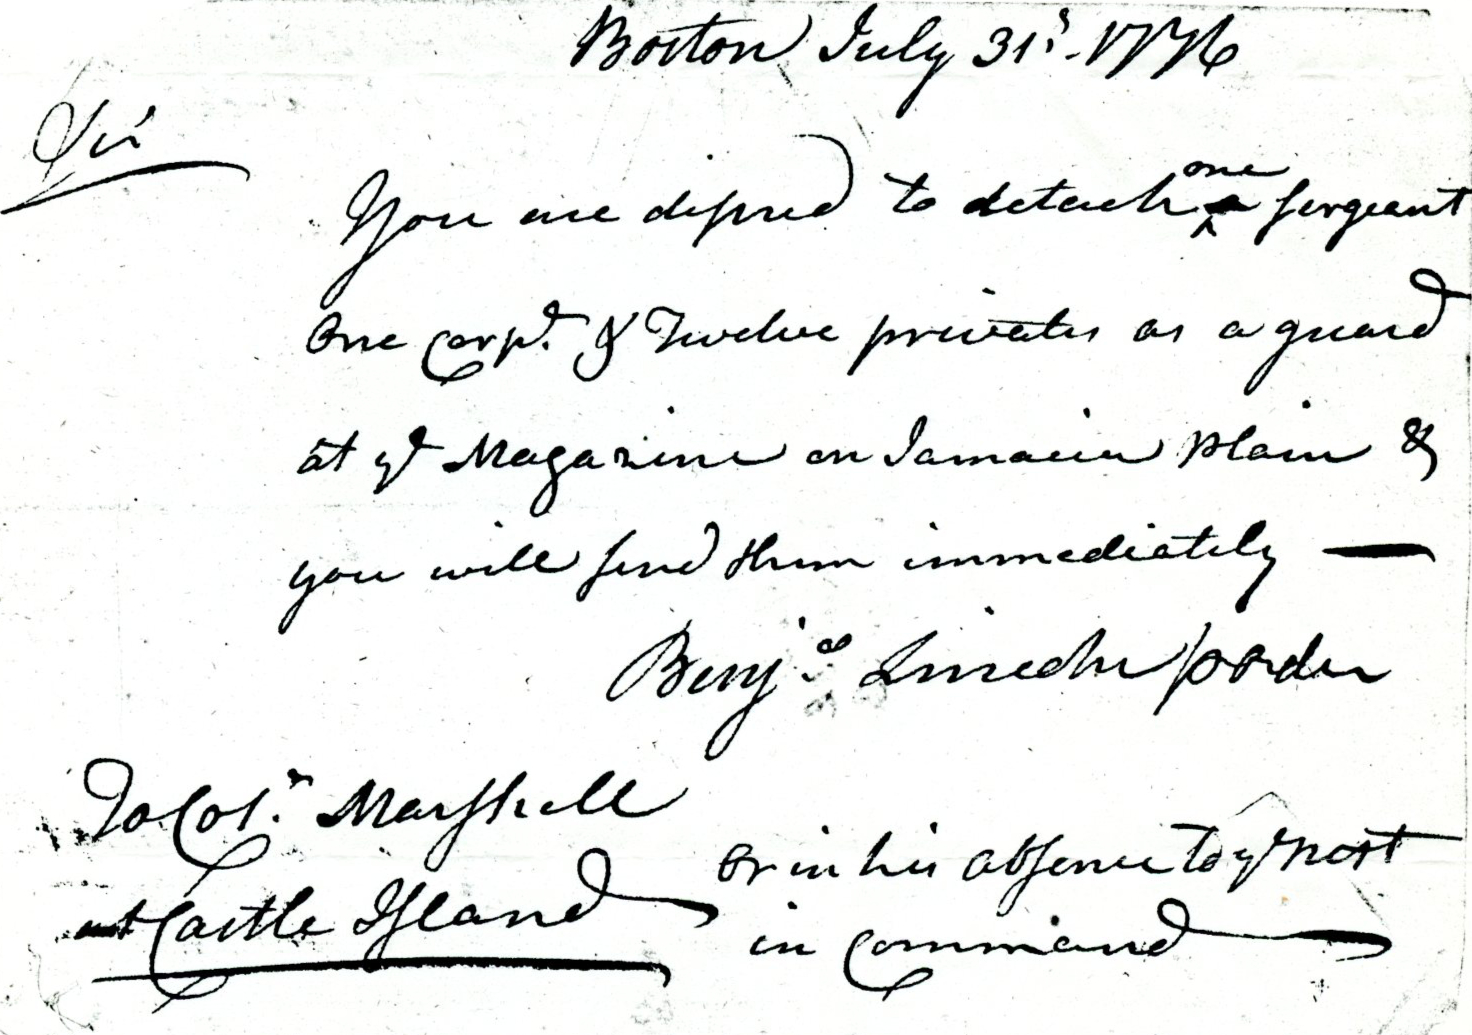 Boston July 31s. 1776
Sir
You are desired to detach one a Sergeant
One Corpl. & Twelve privates as a guard
at ye Magazine on Jamaica plain &
you will send them immediately —
Benja. Lincoln p order
To Col. Marshall
at Castle Island
or in his absence to ye next
in Command